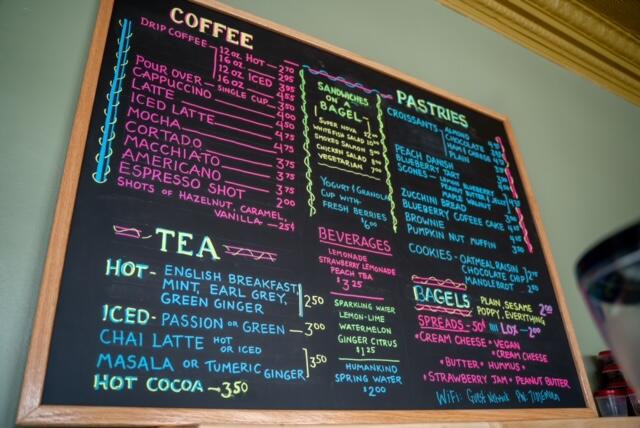 COFFEE
DRIP COFFEE
12 oz. HOT — 2.70
16 oz.
12 oz. ICED
16 oz.
POUR OVER — SINGLE CUP
CAPPUCCINO
LATTE
ICED LATTE
MOCHA
CORTADO
MACCHIATO
AMERICANO
ESPRESSO SHOT 2.00
SHOTS OF HAZELNUT, CARAMEL,
VANILLA — 25¢
TEA
HOT - ENGLISH BREAKFAST,
MINT, EARL GREY,
GREEN GINGER
2.50
ICED - PASSION OR GREEN — 3.00
CHAI LATTE HOT OR ICED
MASALA OR TUMERIC GINGER
3.50
HOT COCOA — 3.50
SANDWICHES
ON A
BAGEL
SUPER NOVA
WHITEFISH SALAD
SMOKED SALMON
CHICKEN SALAD
VEGETARIAN
YOGURT & GRANOLA
CUP WITH
FRESH BERRIES
$6.00
BEVERAGES
LEMONADE
STRAWBERRY LEMONADE
PEACH TEA
$3.25
SPARKLING WATER
LEMON-LIME
WATERMELON
GINGER CITRUS
$1.25
HUMANKIND
SPRING WATER
$2.00
PASTRIES
CROISSANTS - ALMOND
CHOCOLATE
HAM & CHEESE
PLAIN
PEACH DANISH
BLUEBERRY TART
SCONES - LEMON BLUEBERRY
PEANUT BUTTER & JELLY
MAPLE WALNUT
ZUCCHINI BREAD
BLUEBERRY COFFEE CAKE
BROWNIE
PUMPKIN NUT MUFFIN
COOKIES - OATMEAL RAISIN
CHOCOLATE CHIP
MANDLEBROT
BAGELS PLAIN, SESAME
POPPY, EVERYTHING
SPREADS - 50¢ LOX - 2.00
*CREAM CHEESE * VEGAN
*CREAM CHEESE
*BUTTER * HUMMUS *
*STRAWBERRY JAM * PEANUT BUTTER
WiFi: Guest Network PW: